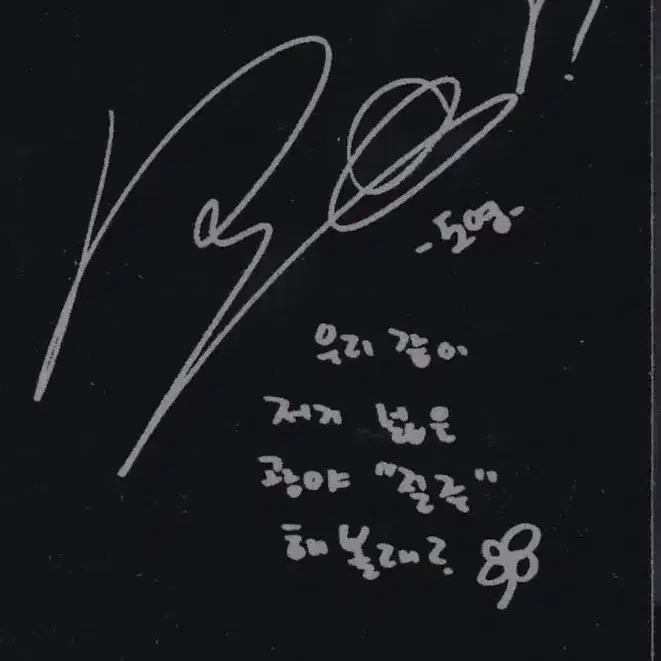 -도영-
우리 같이
저기 넓은
광야 "질주"
해볼래?